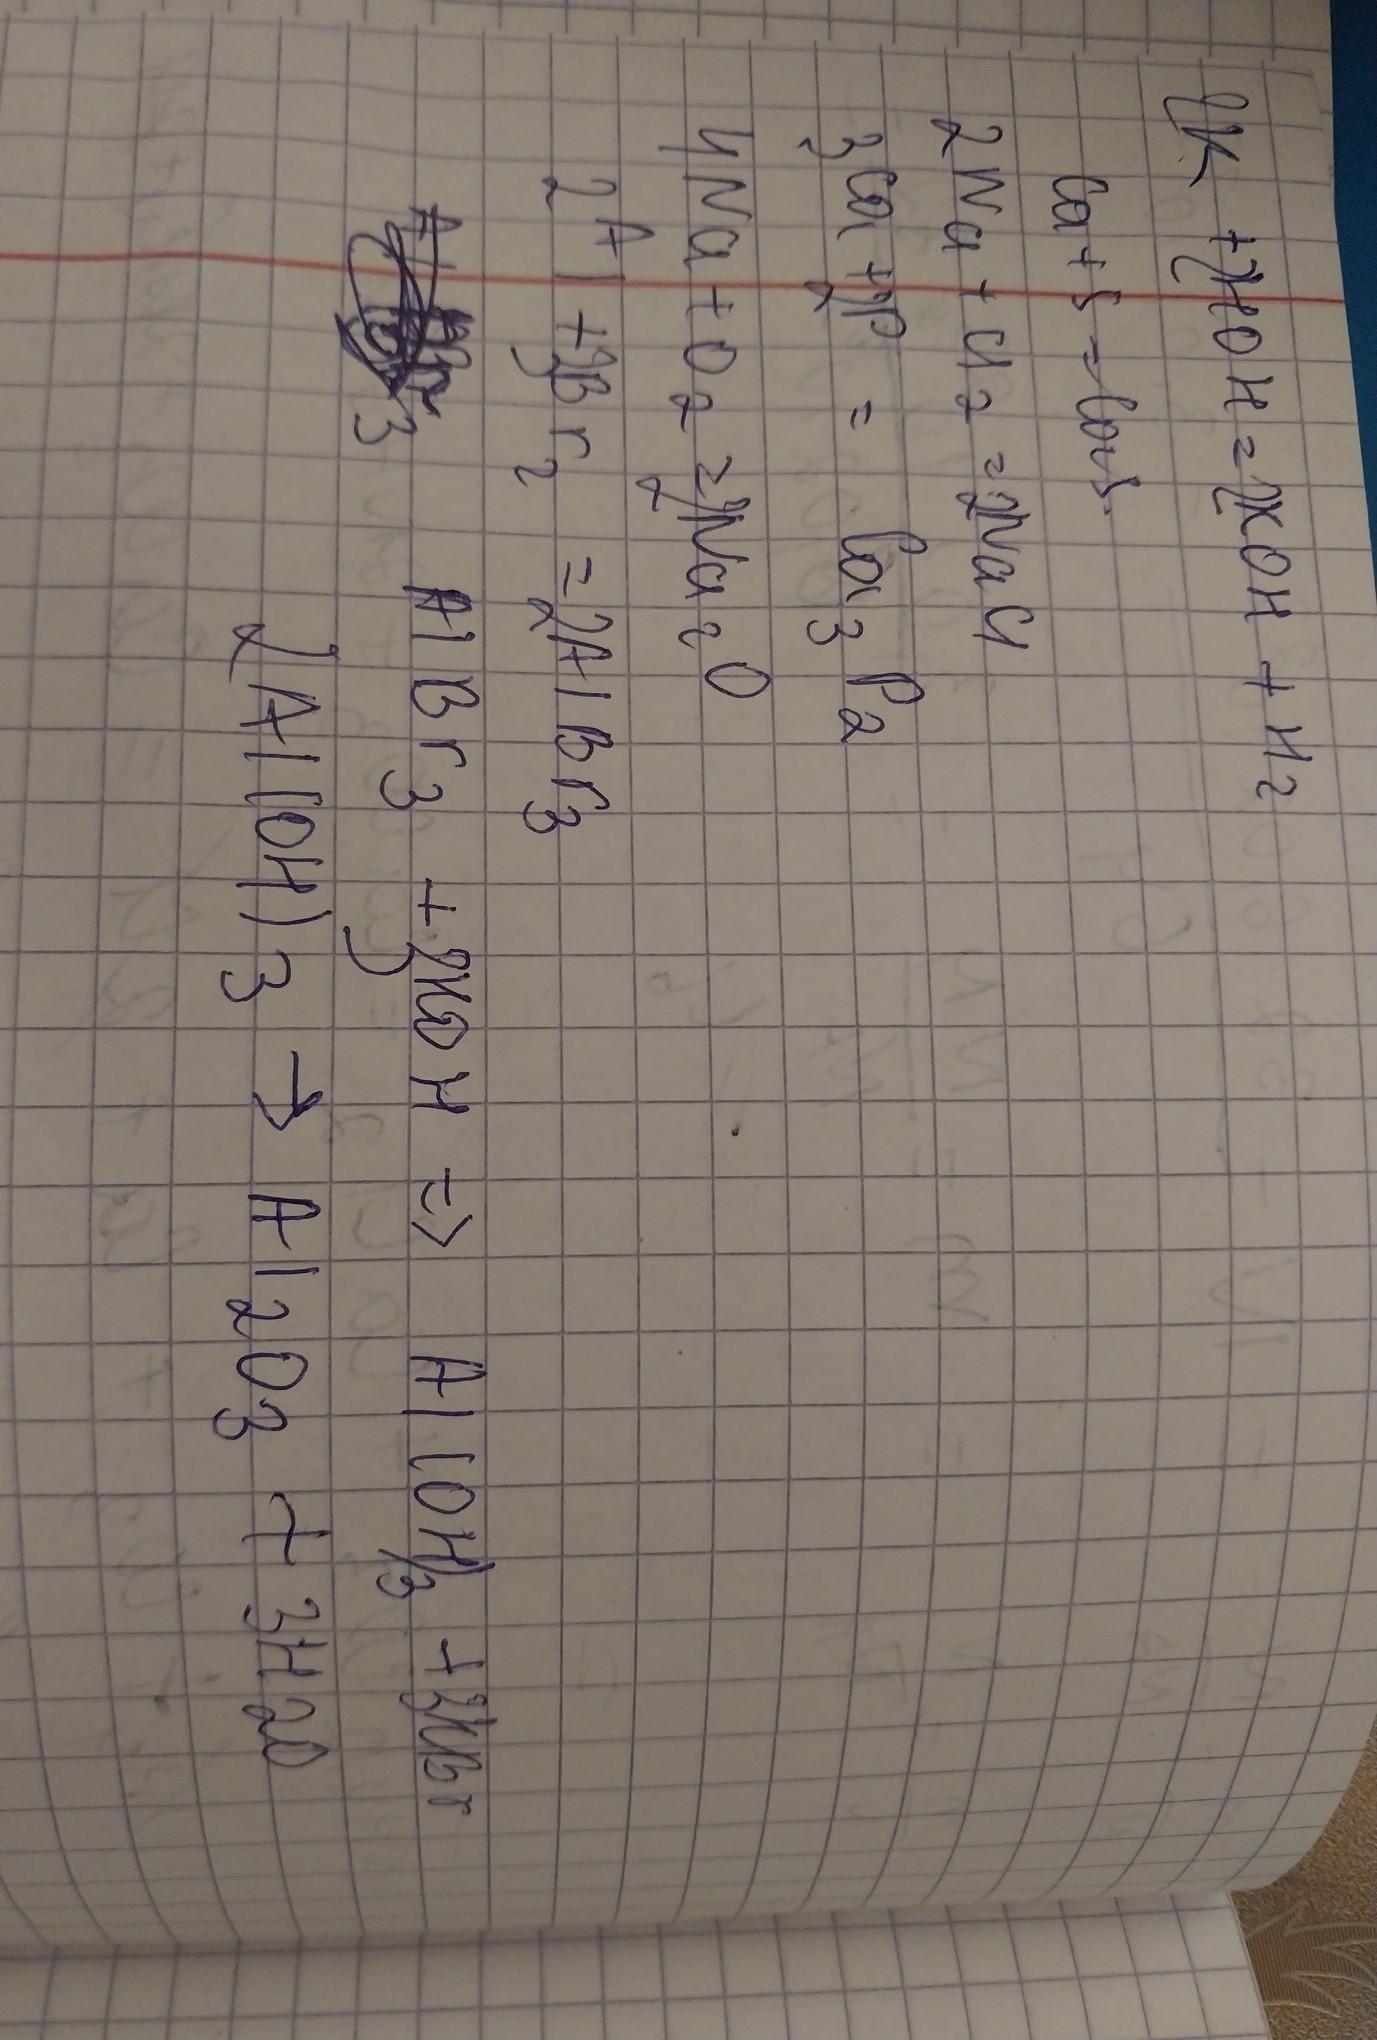 2K + 2HOH = 2KOH + H2
Ca + S = CaS
2Na + Cl2 = 2NaCl
3Ca + 2P = Ca3P2
4Na + O2 = 2Na2O
2Al + 3Br2 = 2AlBr3
AlBr3 + 3KOH => Al(OH)3 + 3KBr
2Al(OH)3 → Al2O3 + 3H2O